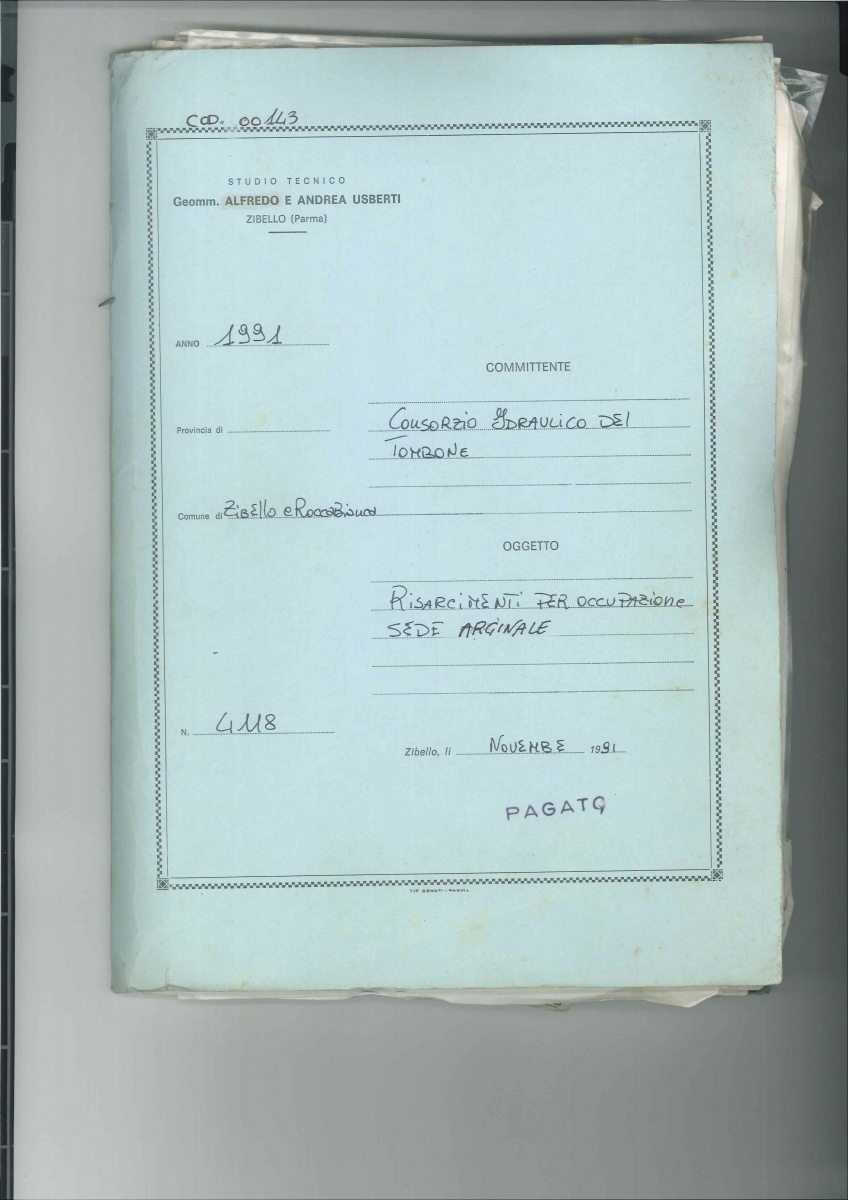 COD. 00143
STUDIO TECNICO
Geomm. ALFREDO E ANDREA USBERTI
ZIBELLO (Parma)
ANNO 1991
COMMITTENTE
Provincia di
CONSORZIO IDRAULICO DEL
TOMBONE
Comune di ZIBELLO e ROCCABIANCA
OGGETTO
RISARCIMENTI PER OCCUPAZIONE
SEDE ARGINALE
N. 4118
Zibello, lì NOVEMBE 1991
PAGATO
TIP. DONATI - PARMA